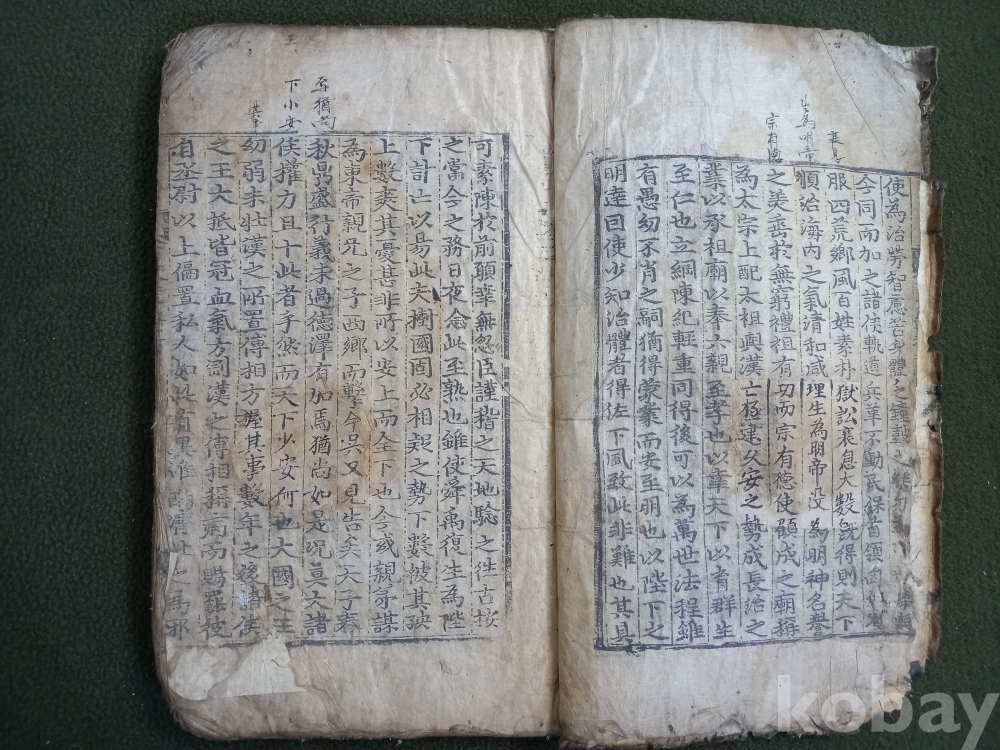 使為治勞智慮苦身體乏鐘鼓之
今同而加之諸侯軌道兵革不動民保首領匈奴
服四荒鄉風百姓素朴獄訟衰息大數既得則天下
順治海內之氣清和咸理生為明帝沒為明神名譽
之美垂於無窮禮祖有功而宗有德使顧成之廟稱
為太宗上配太祖與漢亡極建久安之勢成長治之
業以承祖廟以奉六親至孝也以幸天下以育群生
至仁也立綱陳紀輕重同得後可以為萬世法程雖
有愚幼不肖之嗣猶得蒙業而安至明也以陛下之
明達因使少知治體者得佐下風致此非難也其具
衰息
生為明帝
宗有德
可素陳於前願幸無忽臣謹稽之天地驗之往古按
之當今之務日夜念此至熟也雖使舜禹復生為陛
下計亡以易此夫樹國固必相疑之勢下數被其殃
上數爽其憂甚非所以安上而全下也今或親弟謀
為東帝親兄之子西鄉而擊今吳又見告矣天子春
秋鼎盛行義未過德澤有加焉猶尚如是況莫大諸
侯權力且十此者乎然而天下少安何也大國之王
幼弱未壯漢之所置傅相方握其事數年之後諸侯
之王大抵皆冠血氣方剛漢之傅相稱病而賜罷彼
自丞尉以上偏置私人如此有異淮南濟北之為邪
焉猶尚
下小安
王
其事
kobay